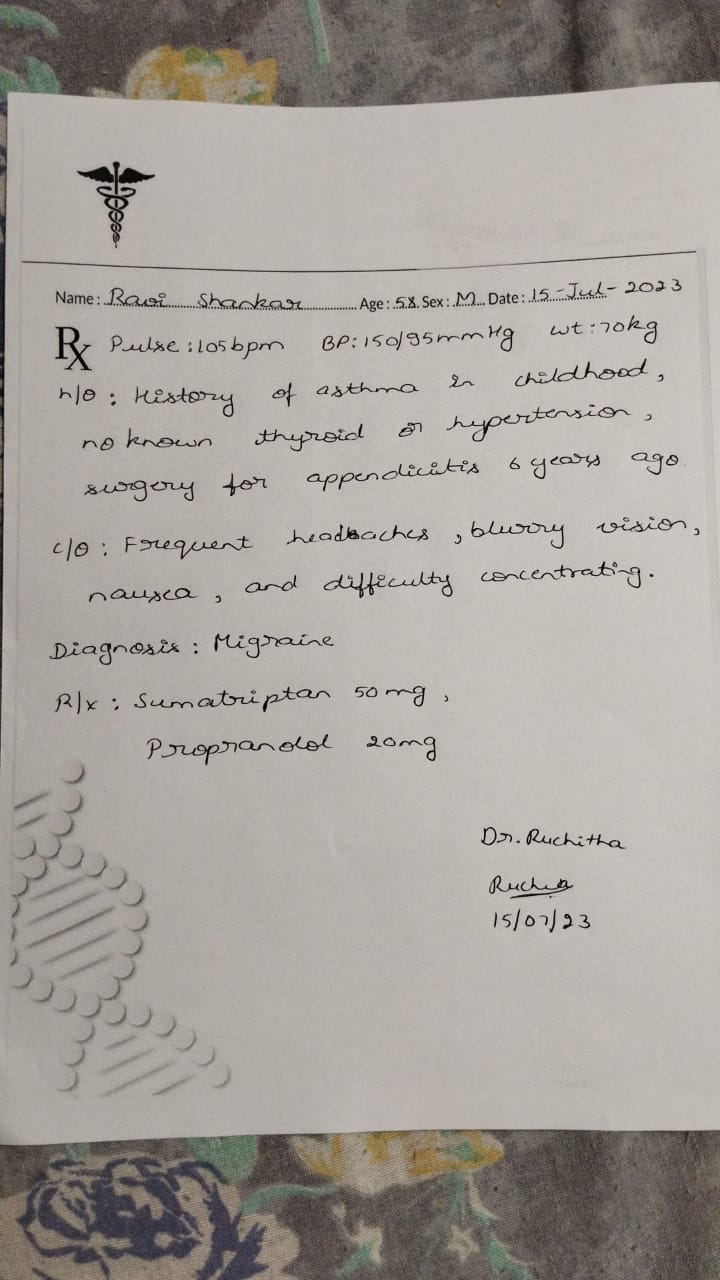 Name: Ravi Shankar Age: 58 Sex: M Date: 15-Jul-2023
Rx Pulse: 105bpm BP: 150/95mmHg wt: 70kg
h/o: History of asthma in childhood,
no known thyroid or hypertension,
surgery for appendicitis 6 years ago
c/o: Frequent headaches, blurry vision,
nausea, and difficulty concentrating.
Diagnosis: Migraine
R/x: Sumatriptan 50mg,
Propranolol 20mg
Dr. Ruchitha
15/07/23